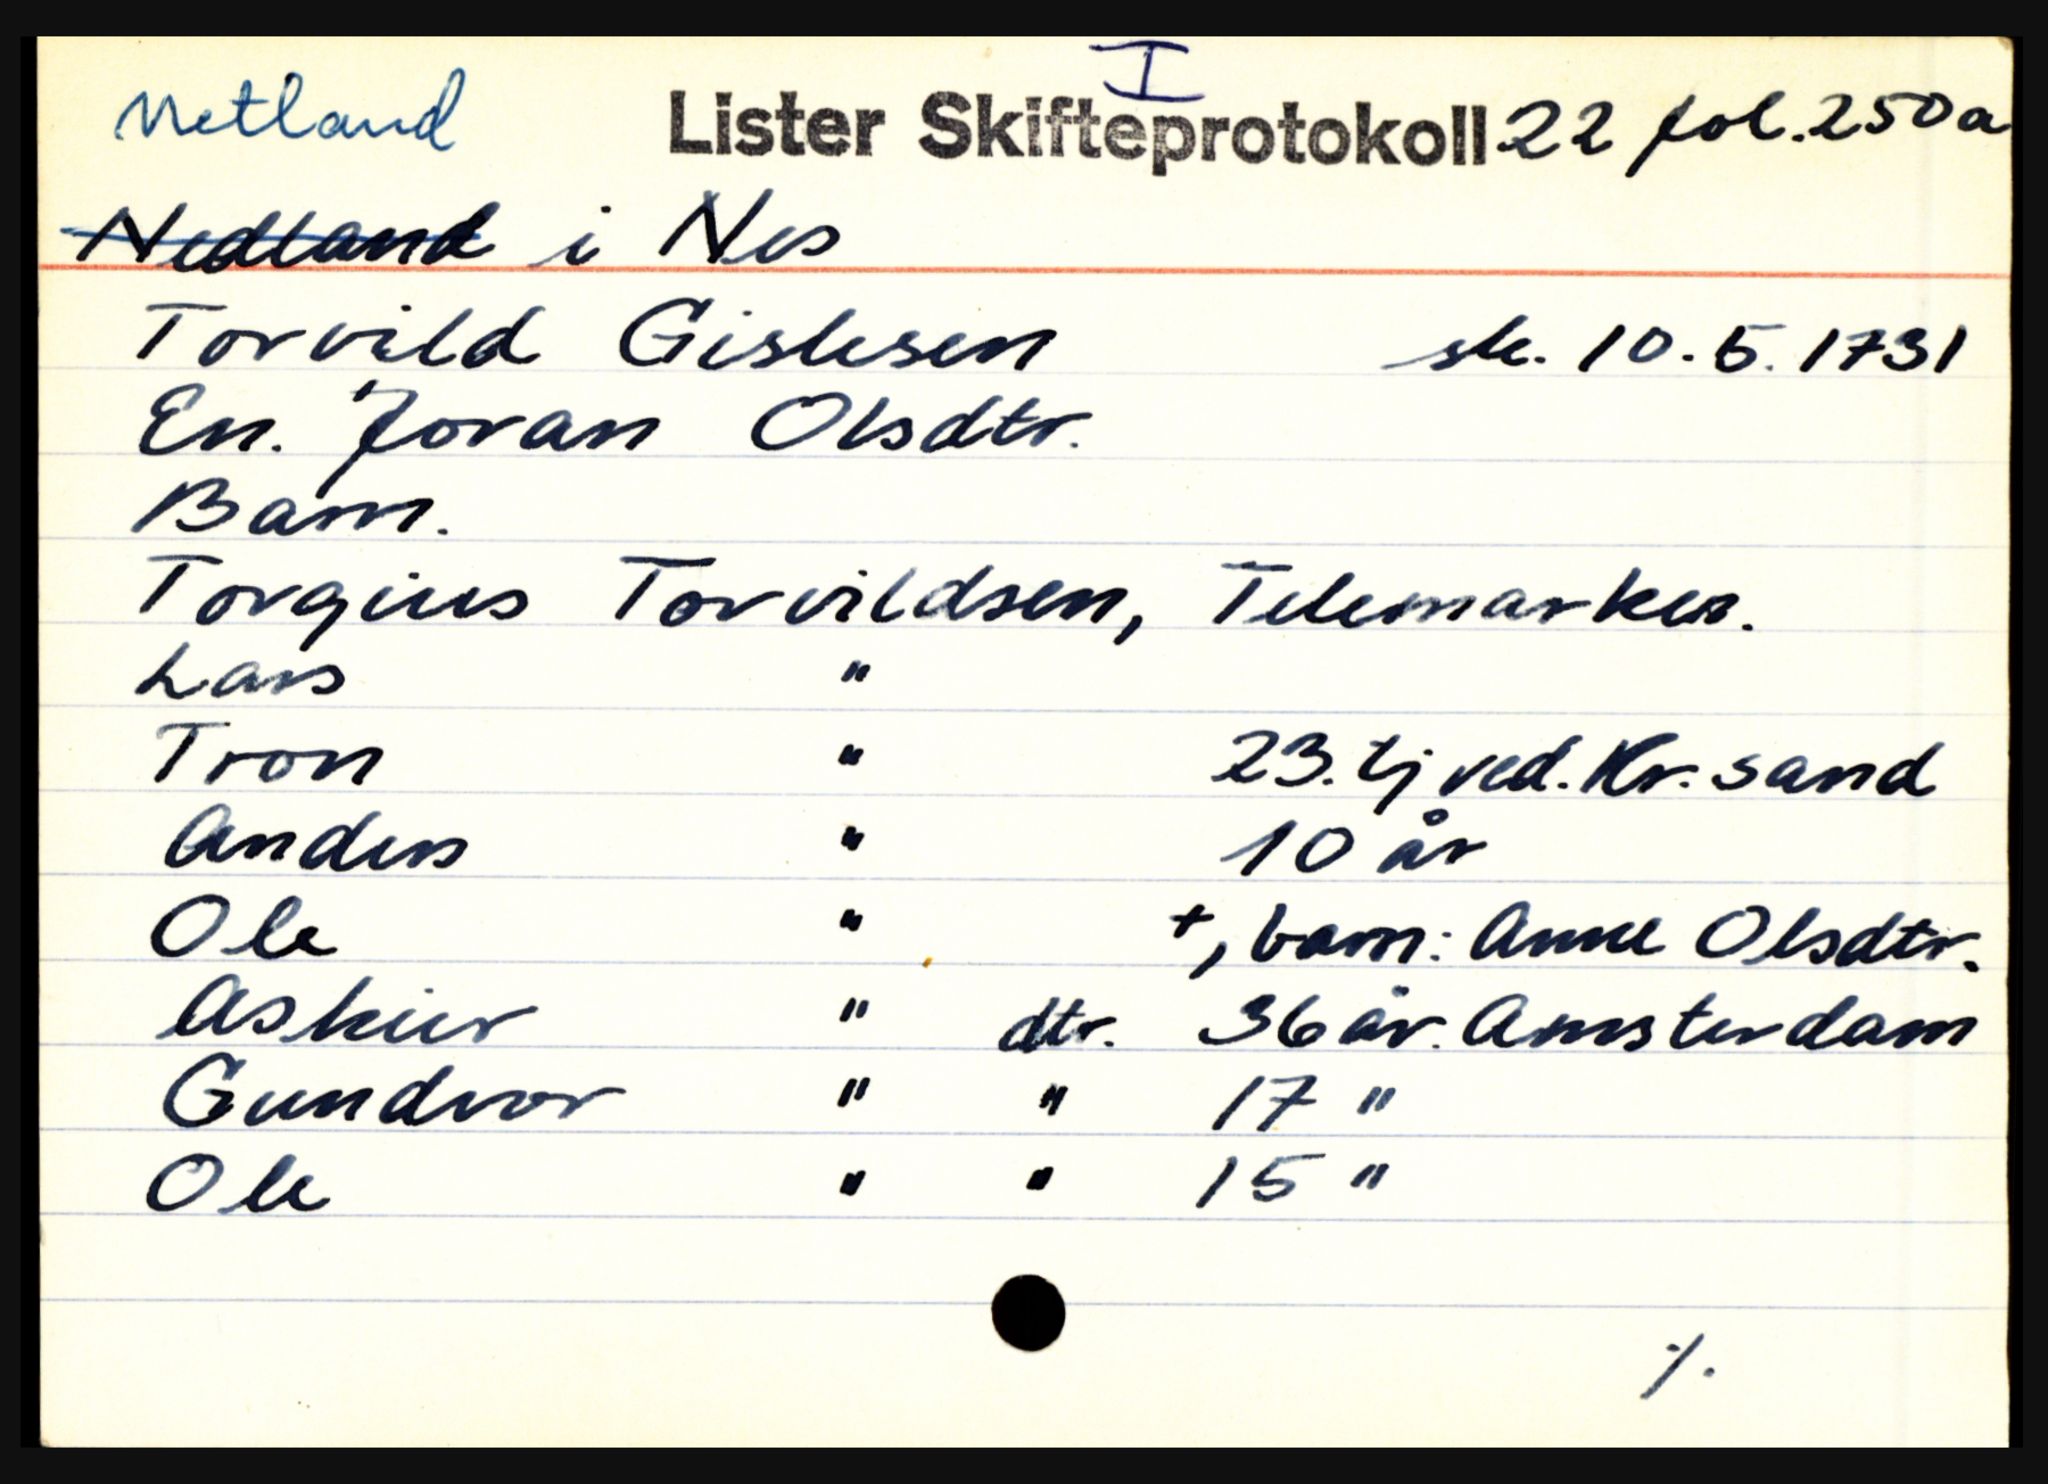 I
Netland Lister Skifteprotokoll 22 fol. 250a
Nedland i Nes
Torvild Gislesen sk. 10.5.1731
En. Joran Olsdtr.
Barn.
Torgius Torvildsen, Telemarken.
Lars "
Tron " 23. tj ved. Kr. sand
Anders " 10 år
Ole " +, barn: Anne Olsdtr.
Askier " dtr. 36 år. Amsterdam
Gundvor " " 17 "
Ole " " 15 "
./.